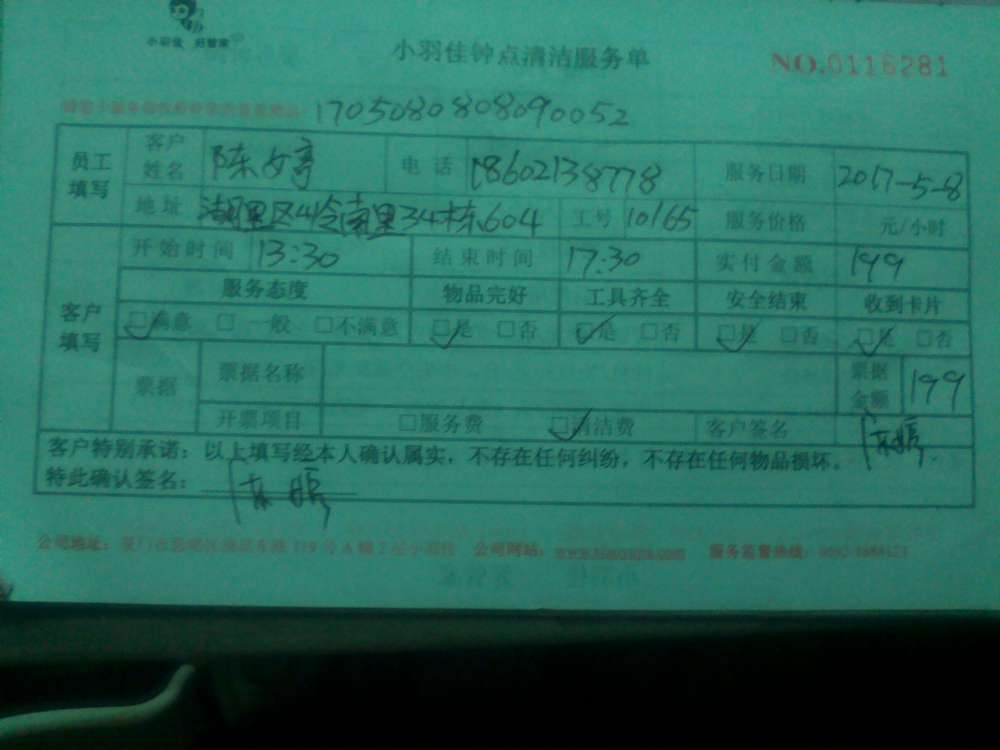 小羽佳 好管家
小羽佳钟点清洁服务单
NO.0116281
1705080808090052
员工填写 客户姓名 陈 电话 18602138778 服务日期 2017-5-8
地址 湖里区 南里34栋604 工号 10165 服务价格 元/小时
客户填写 开始时间 13:30 结束时间 17:30 实付金额 199
服务态度 物品完好 工具齐全 安全结束 收到卡片
☑满意 □一般 □不满意 ☑是 □否 ☑是 □否 ☑是 □否 ☑是 □否
票据 票据名称 票据金额 199
开票项目 □服务费 ☑清洁费 客户签名 陈
客户特别承诺：以上填写经本人确认属实，不存在任何纠纷，不存在任何物品损坏。
特此确认签名： 陈
公司地址： 公司网站： 服务监督热线：